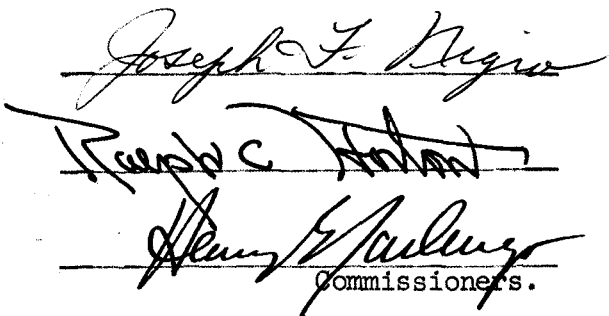 Joseph F. Nigro
Ralph C
Henry
Commissioners.